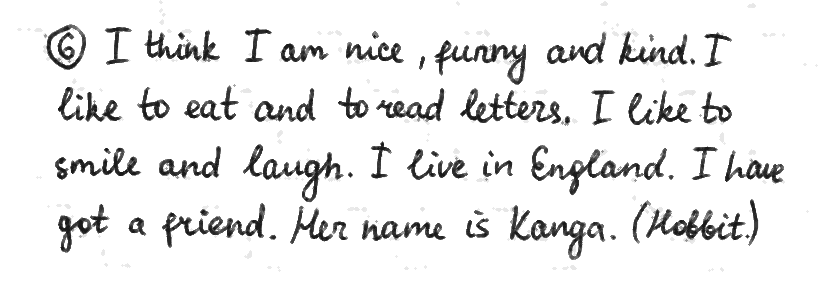 ⑥ I think I am nice, funny and kind. I
like to eat and to read letters. I like to
smile and laugh. I live in England. I have
got a friend. Her name is Kanga. (Hobbit.)